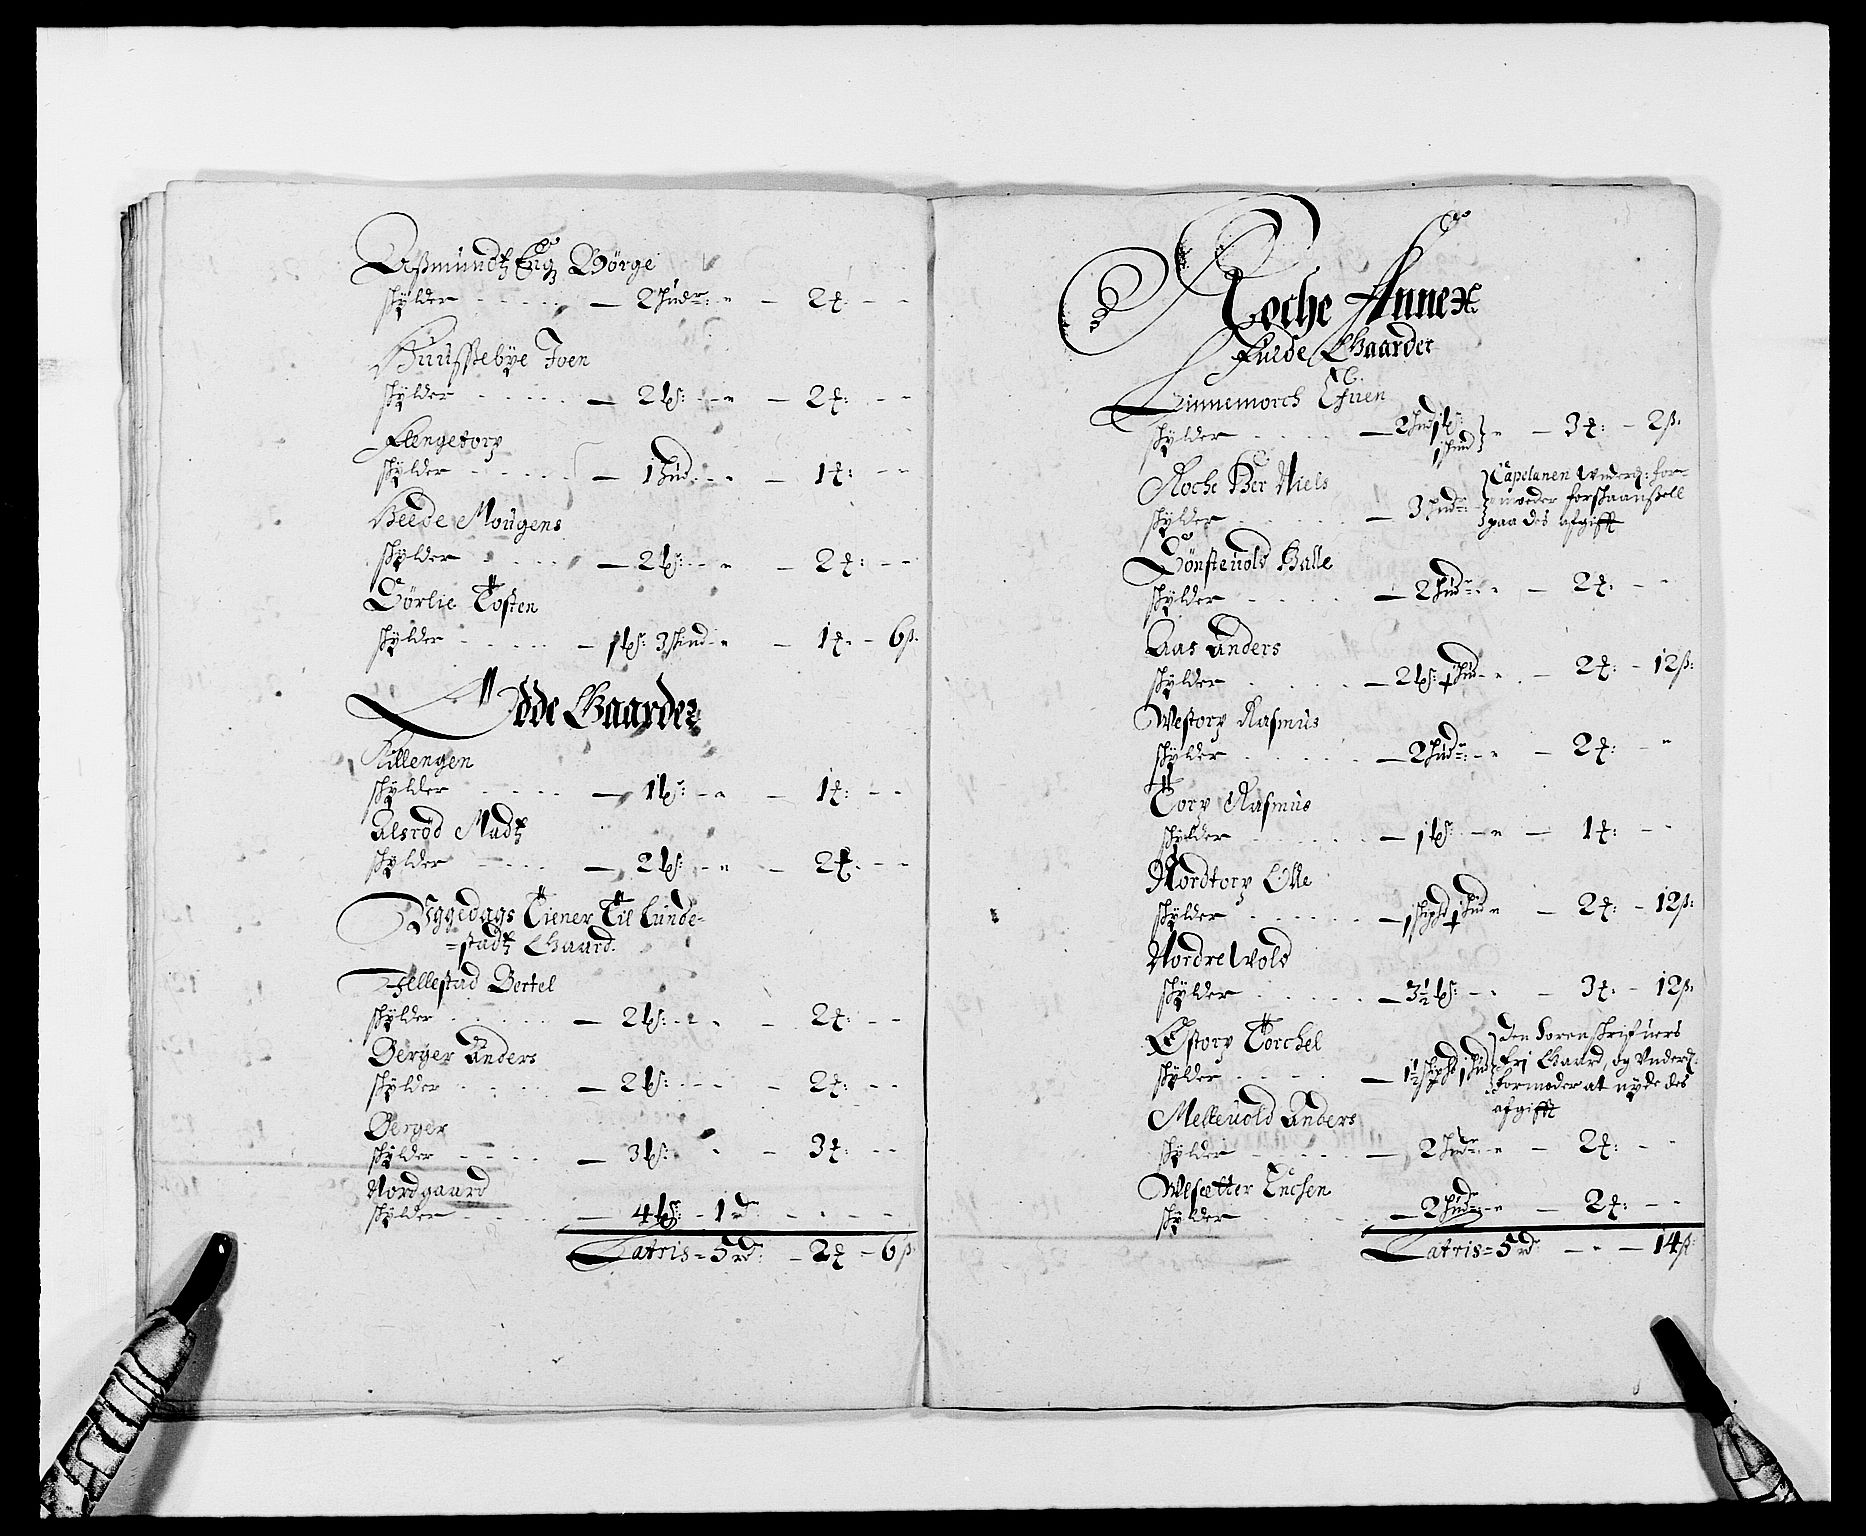 Aszmundtz Eng Børge
schylder - - - - - 2 hudr: - - 2 ₰: - -
Huussebye Joen
schylder - - - - - 2 lb: - - - 2 ₰: - -
Flengetorp
schylder - - - - - 1 hud - - - 1 ₰: - -
Heede Mougens
schylder - - - - 2 lb: - - - 2 ₰: - -
Dørlie Tosten
schylder - - - - 1 lb: 3 skind - - 1 ₰: - 6 ß:
Ødde Gaarder
Killengen
schylder - - - - 1 lb: - - - 1 ₰: - -
Alsrød Madtz
schylder - - - - 2 lb: - - - 2 ₰: - -
Uggedags Tiener Til Lunde-
=stadtz Gaard.
Fellestad Bertel
schylder - - - - 2 lb: - - - 2 ₰: - -
Berger Anders
schylder - - - - 2 lb: - - - 2 ₰: - -
Berger
schylder - - - - 3 lb: - - 3 ₰: - -
Nordgaard
schylder - - - - 4 lb: - 1 rd - - - -
Latris = 5 rd: - 2 ₰ - 6 ß:
Roche Annex
Fulde Gaarder
Linnemorch Efuen
schylder - - - - 2 hud 1 lb: 1 skind - - 3 ₰: - 2 ß:
Roche Per Niels
schylder - - - - 3 hudr: Capelanen Underd: for-
moder forskaanszell
paa des afgifft
Dønsteuold Halle
schylder - - - - 2 hudr: - - 2 ₰: - -
Aas Anders
schylder - - - - 2 lb: 1 hud - - 2 ₰: - 12 ß:
Westorp Rasmus
schylder - - - - 2 hudr: - - 2 ₰: - -
Torp Rasmus
schylder - - - - 1 lb: - - - 1 ₰: - -
Nordtorp Olle
schylder - - - - 1 skipd 1 hud - - 2 ₰: - 12 ß:
Nordre Wold
schylder - - - - 3½ lb: - - 3 ₰: - 12 ß:
Østorp Torchel
schylder - - - - 1½ skipd 1 hud Den Sorenskrifuers
frj Gaard, og Underd:
formoder at nyde des
afgifft
Melleuold Anders
schylder - - - - 2 hudr: - - 2 ₰: - -
Wlsetter Enchen
schylder - - - - 2 hudr: - - 2 ₰: - -
Latris = 5 rd: - - - 14 ß: